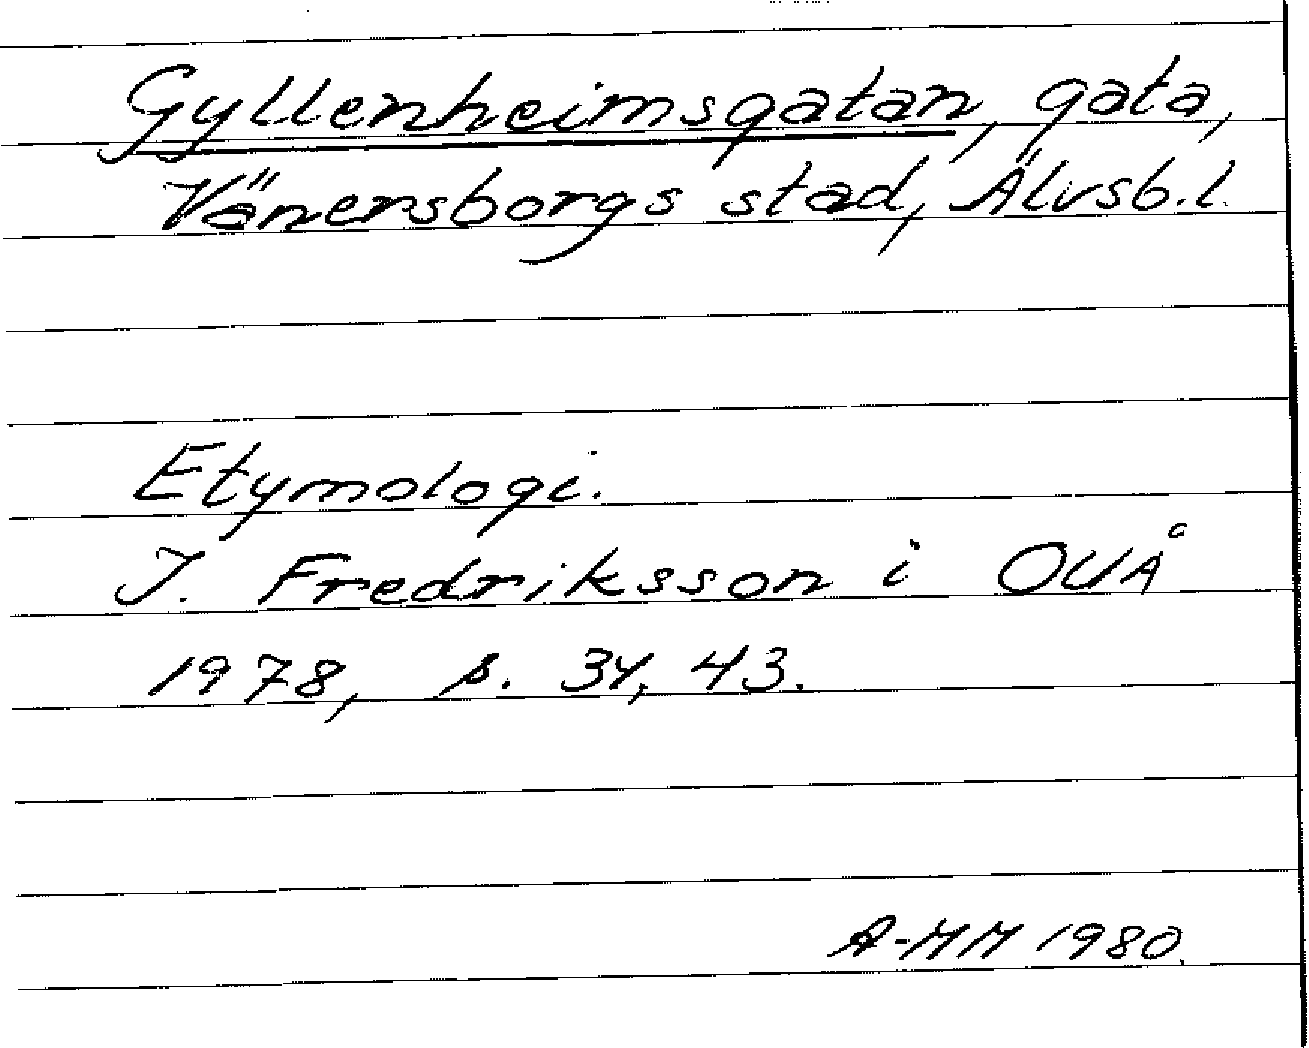 Gyllenheimsgatan, gata,
Vänersborgs stad, Älvsb.l.
Etymologi.
I. Fredriksson i OUÅ
1978, s. 34, 43.
A-MM 1980.